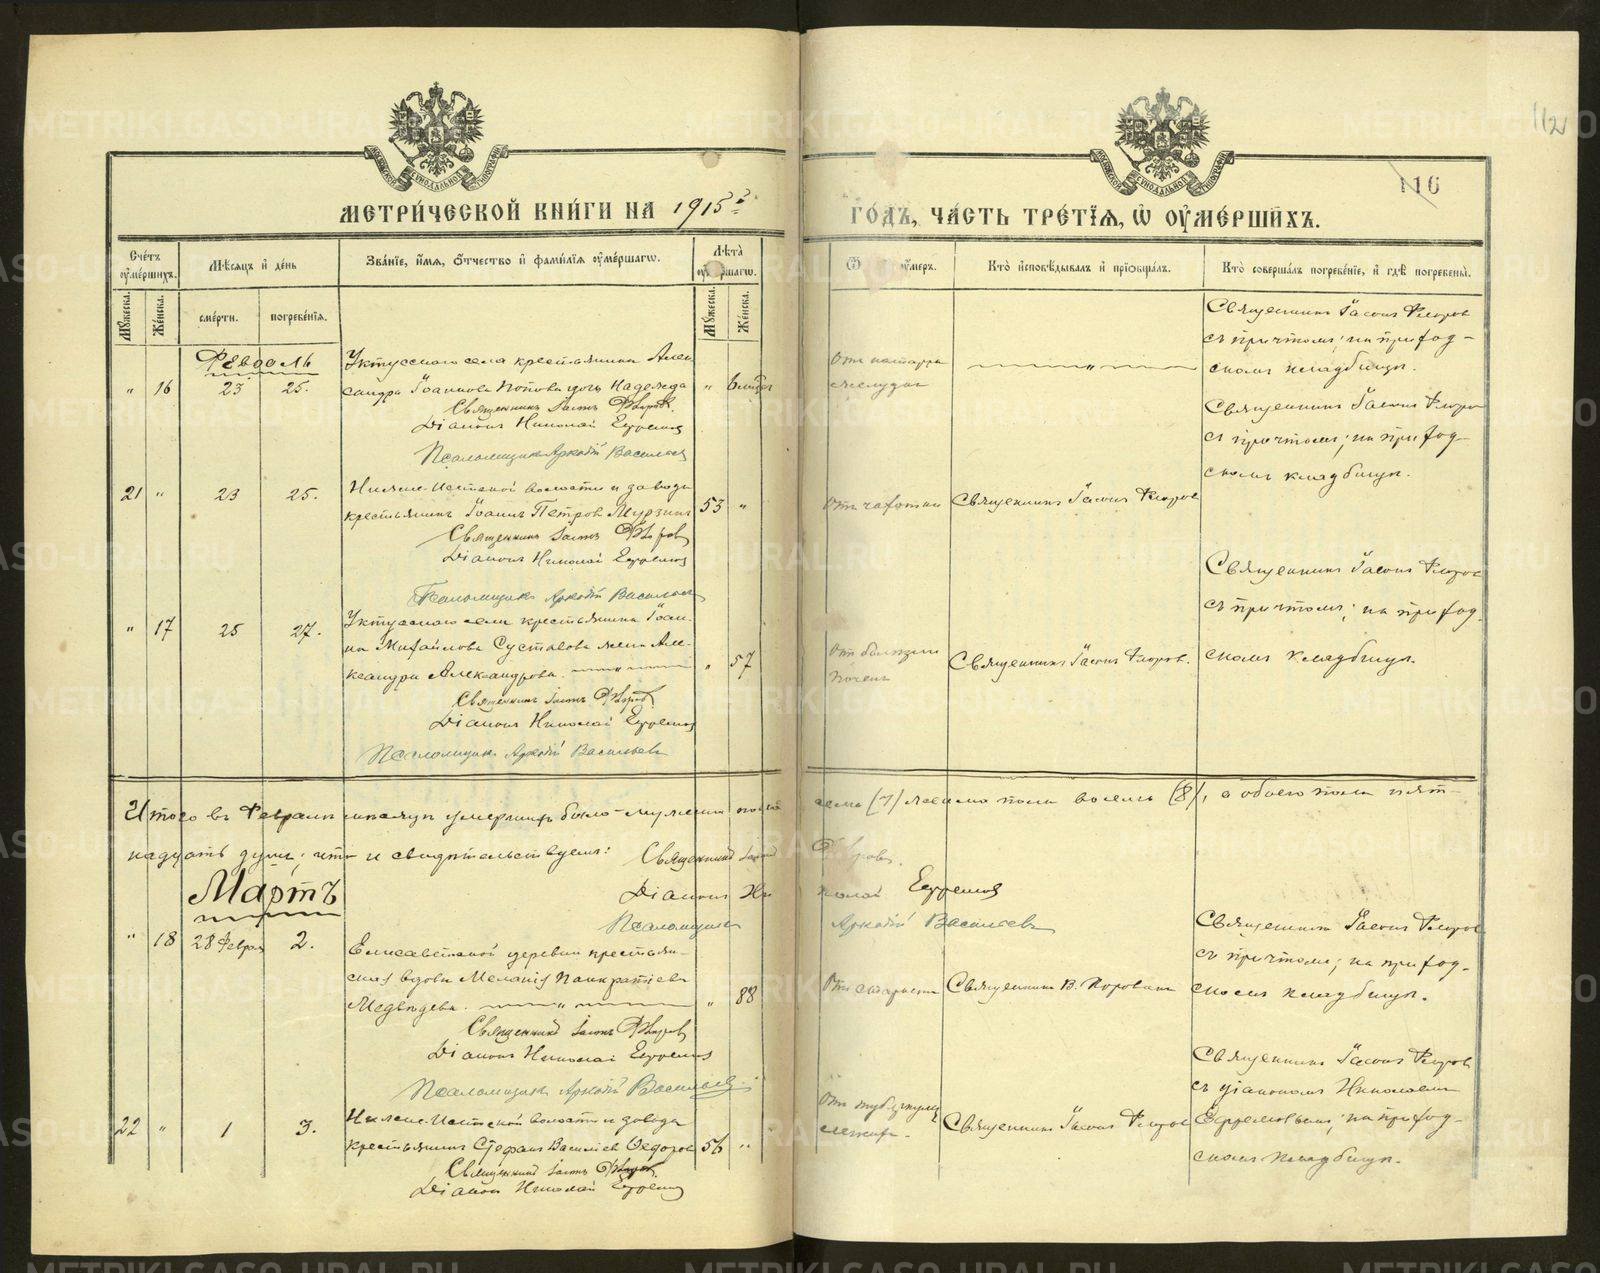 МЕТРИ́ЧЕСКОЙ КНИ́ГИ НА 1915ъ
ГО́ДЪ, ЧА́СТЬ ТРЕ́ТЇѦ, Ѿ ОУ҆МЕ́РШИХЪ.
112
116
Сче́тъ оу҆ме́ршихъ.
Мѣ́сѧцъ и҆ де́нь
Зва́нїе, и҆́мѧ, ѻ҆́тчество и҆ фами́лїѧ оу҆ме́ршагѡ.
Лѣ́та
Кто̀ и҆сповѣ́дывалъ и҆ прїѡбща́лъ.
Кто̀ соверша́лъ погребе́нїе, и҆ гдѣ̀ погребены̀.
Мꙋ́жеска.
Же́нска.
сме́рти.
погребе́нїѧ.
Мꙋ́жеска.
Же́нска.
Февраль
" 16 23 25.
Уктусскаго села крестьянина Алек
сандра Іоаннова Попова дочь Надежда
"
Священникъ Іасонъ Флоровъ
Діаконъ Николай Ефремовъ
Псаломщикъ Аркадій Васильевъ
желудка
Священникъ Іасонъ Флоровъ
съ причтомъ; на приход-
скомъ кладбищѣ.
21 " 23 25.
Нижне-Исетской волости и завода
крестьянинъ Іоаннъ Петровъ Мурзинъ
53 "
Священникъ Іасонъ Флоровъ
Діаконъ Николай Ефремовъ
Псаломщикъ Аркадій Васильевъ
Отъ чахотки
Священникъ Іасонъ Флоровъ
Священникъ Іасонъ Флоровъ
съ причтомъ; на приход-
скомъ кладбищѣ.
" 17 25 27.
Уктусскаго села крестьянина Іоан-
на Михайлова Сусталова жена Але-
ксандра Александрова.
" 57
Священникъ Іасонъ Флоровъ
Діаконъ Николай Ефремовъ
Псаломщикъ Аркадій Васильевъ
Отъ болѣзни
почекъ
Священникъ Іасонъ Флоровъ.
Священникъ Іасонъ Флоровъ
съ причтомъ; на приход-
скомъ кладбищѣ.
Итого въ Февралѣ мѣсяцѣ умершихъ было-мужеска пола
семь (7) женска пола восемь (8), а обоего пола пят-
надцать душъ; что и свидѣтельствуемъ: Священникъ Іасонъ
Флоровъ.
Діаконъ Ни
колай Ефремовъ
Псаломщикъ
Аркадій Васильевъ
Мартъ
" 18 28 Февраля 2.
Елисаветской деревни крестьян-
ская вдова Меланія Панкратіева
Медвѣдева.
" 88
Священникъ Іасонъ Флоровъ
Діаконъ Николай Ефремовъ
Псаломщикъ Аркадій Васильевъ
Отъ старости
Священникъ В. Коровинъ
Священникъ Іасонъ Флоровъ
съ причтомъ; на приход-
скомъ кладбищѣ.
22 " 1 3.
Нижне-Исетской волости и завода
крестьянинъ Стефанъ Васильевъ Ѳедоровъ
56 "
Священникъ Іасонъ Флоровъ
Діаконъ Николай Ефремовъ
Отъ туберкулеза
легкихъ.
Священникъ Іасонъ Флоровъ
Священникъ Іасонъ Флоровъ
съ діакономъ Николаемъ
Ефремовымъ; на приход-
скомъ кладбищѣ.